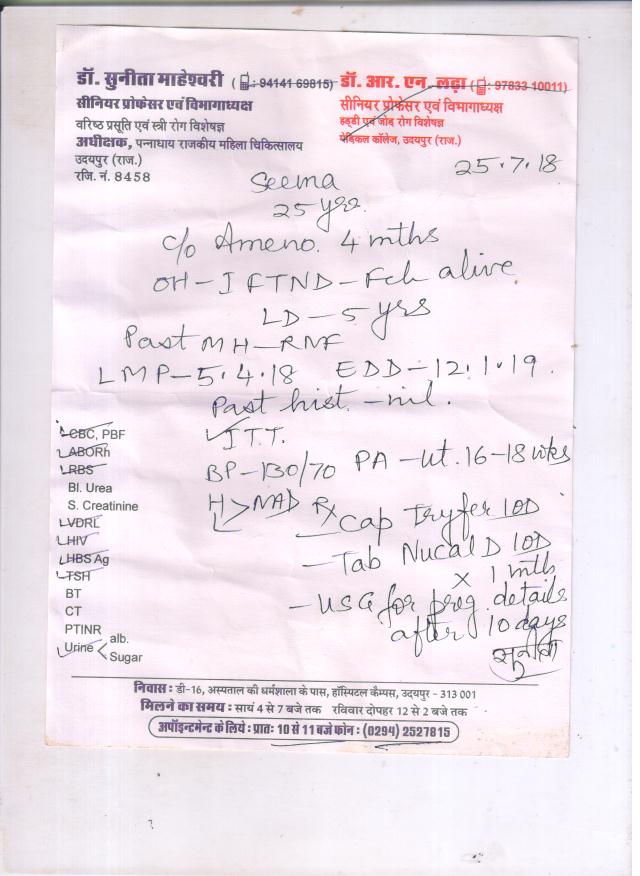 डॉ. सुनीता माहेश्वरी ( : 94141 69815)
सीनियर प्रोफेसर एवं विभागाध्यक्ष
वरिष्ठ प्रसूति एवं स्त्री रोग विशेषज्ञ
अधीक्षक, पन्नाधाय राजकीय महिला चिकित्सालय
उदयपुर (राज.)
रजि. नं. 8458
डॉ. आर. एन. लढ़ा ( : 97833 10011)
सीनियर प्रोफेसर एवं विभागाध्यक्ष
हड्डी एवं जोड़ रोग विशेषज्ञ
मेडिकल कॉलेज, उदयपुर (राज.)
25.7.18
Seema
25 yrs.
c/o Ameno. 4 mths
OH-I FTND-Fch alive
LD-5 yrs
Past MH-RNF
LMP-5.4.18 EDD-12.1.19.
Past hist. -nil.
I T.T.
BP-130/70 PA -ut. 16-18 wks
H
L > NAD Rx
- Cap Tryfer 1OD
- Tab Nucal D 1OD
x 1 mth
- USG for preg. details
after 10 days
सुनीता
CBC, PBF
ABORh
RBS
Bl. Urea
S. Creatinine
VDRL
HIV
HBS Ag
TSH
BT
CT
PTINR
Urine < alb.
Sugar
निवास : डी-16, अस्पताल की धर्मशाला के पास, हॉस्पिटल कैम्पस, उदयपुर - 313 001
मिलने का समय : सायं 4 से 7 बजे तक रविवार दोपहर 12 से 2 बजे तक
अपॉइन्टमेन्ट के लिये : प्रातः 10 से 11 बजे फोन : (0294) 2527815